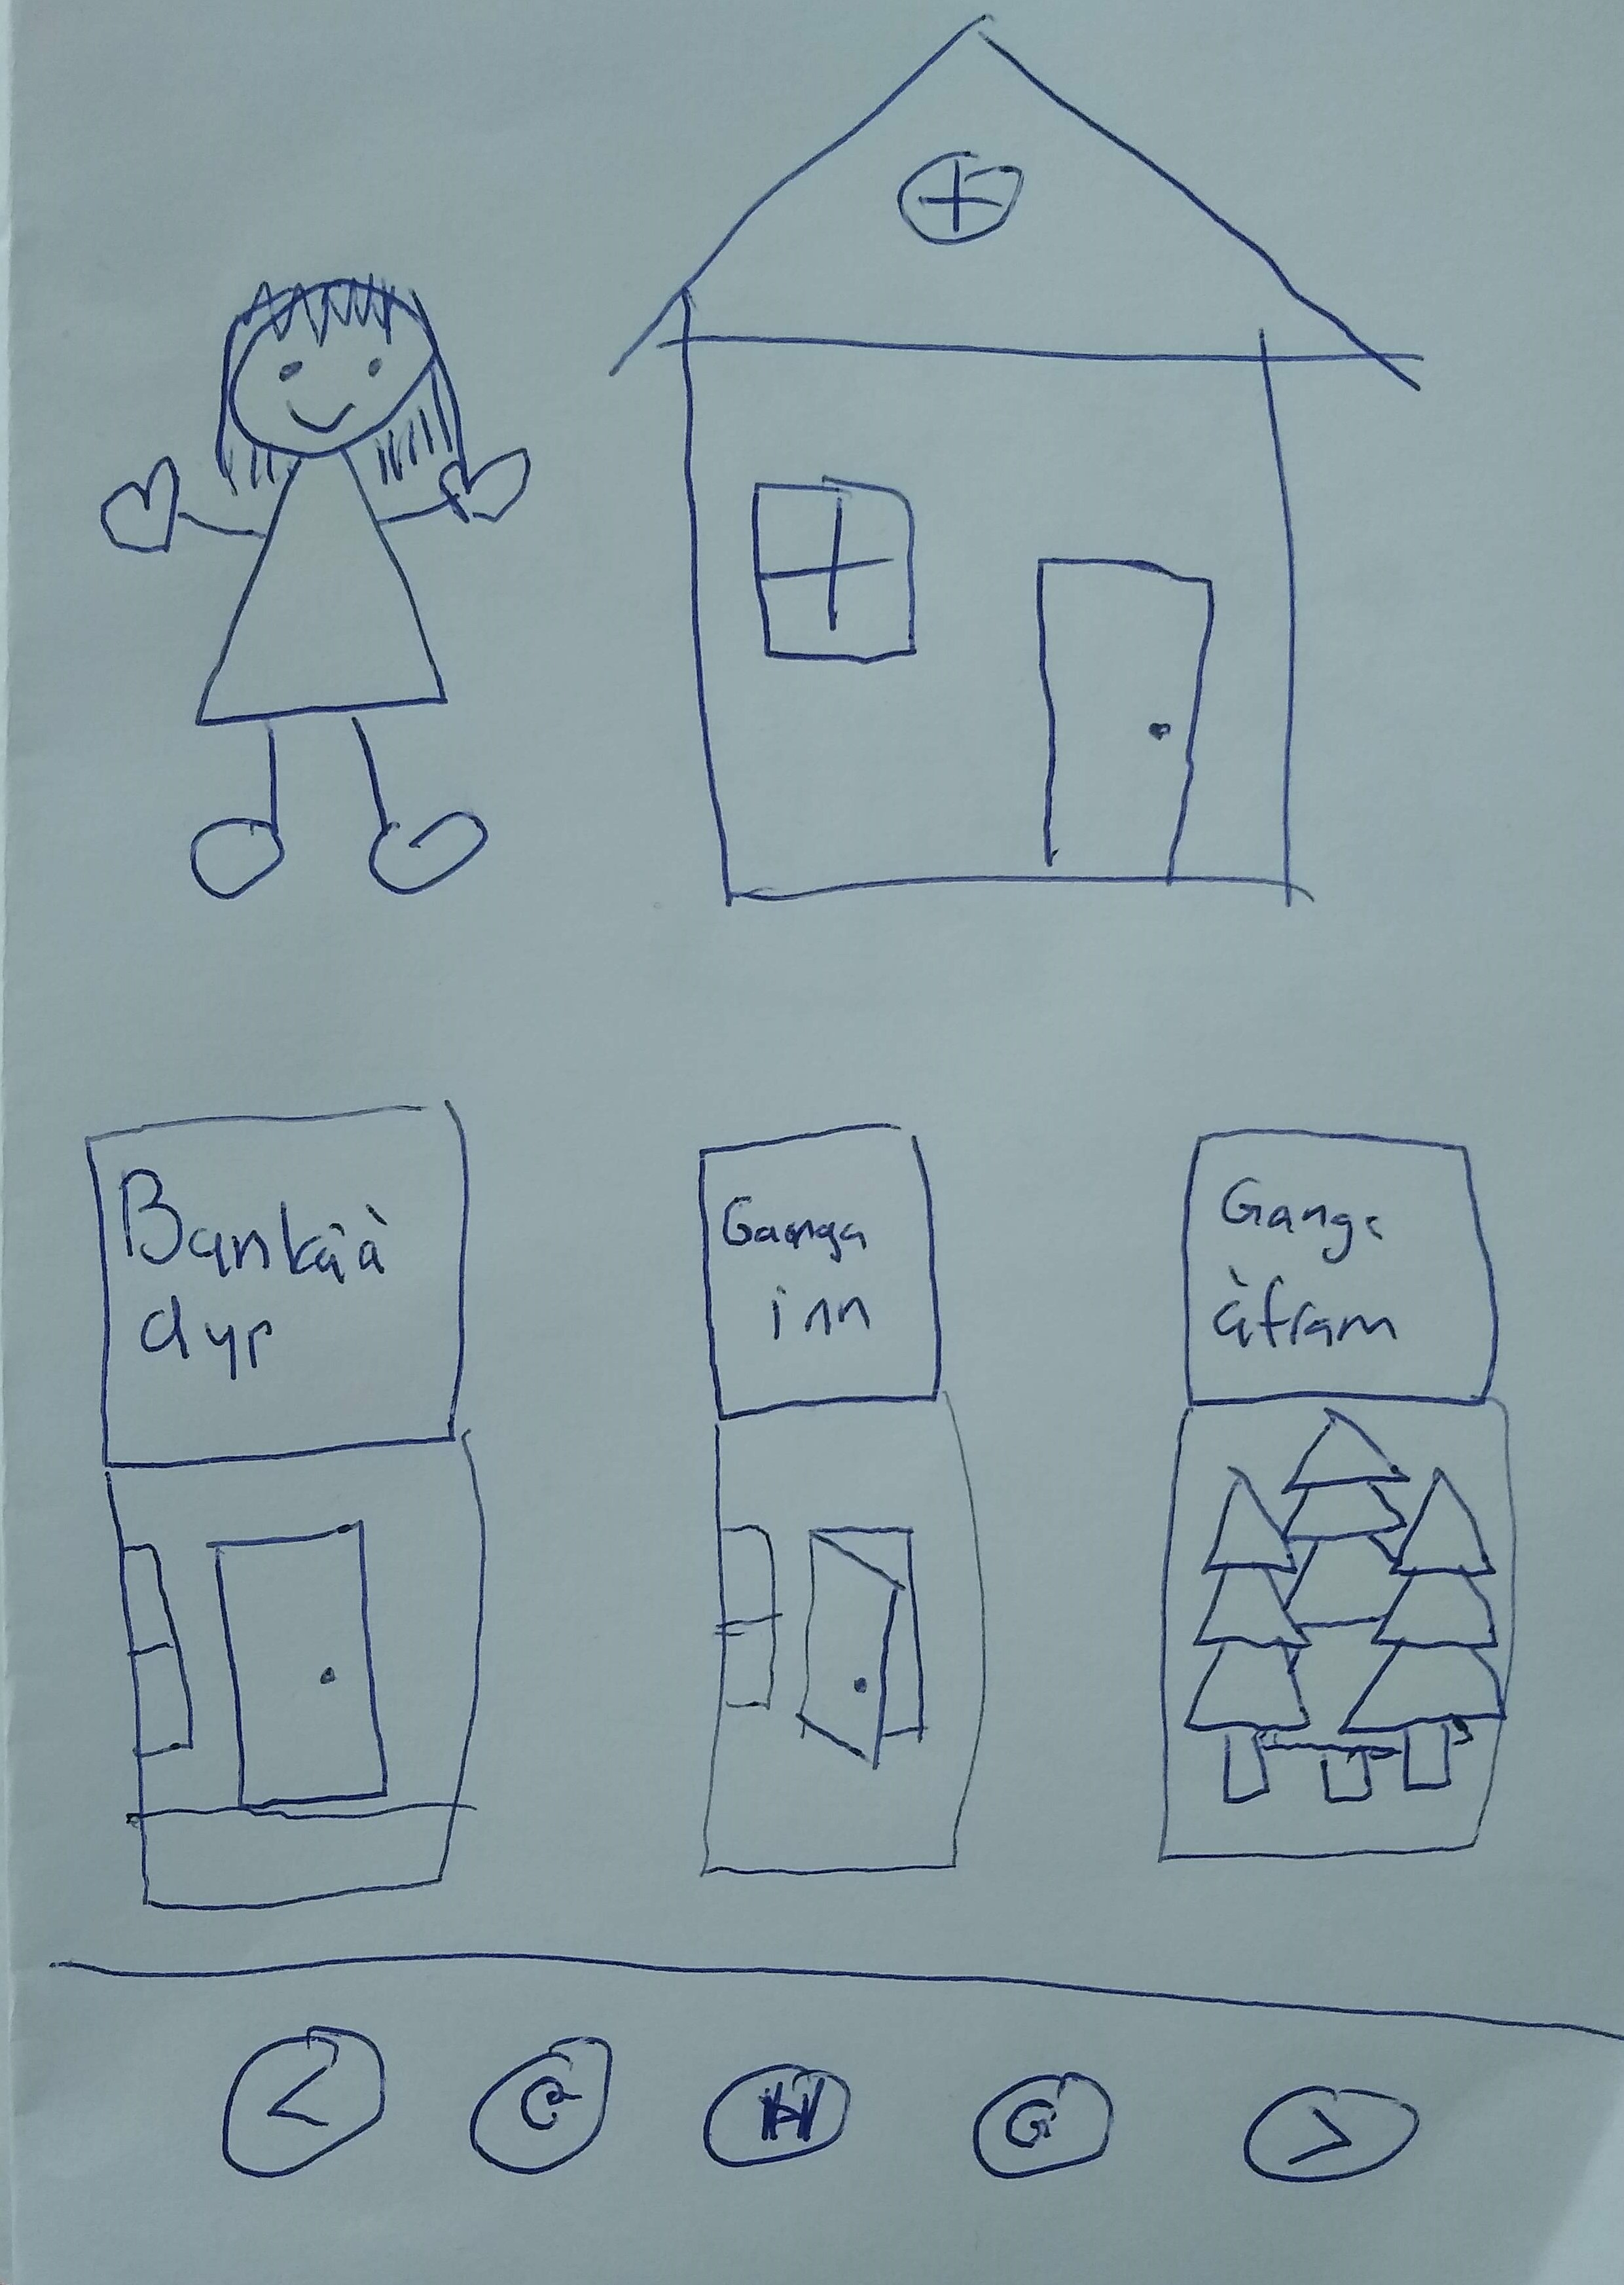 Banka à
dyr
Ganga
inn
Ganga
àfram
<
C
H
G
>